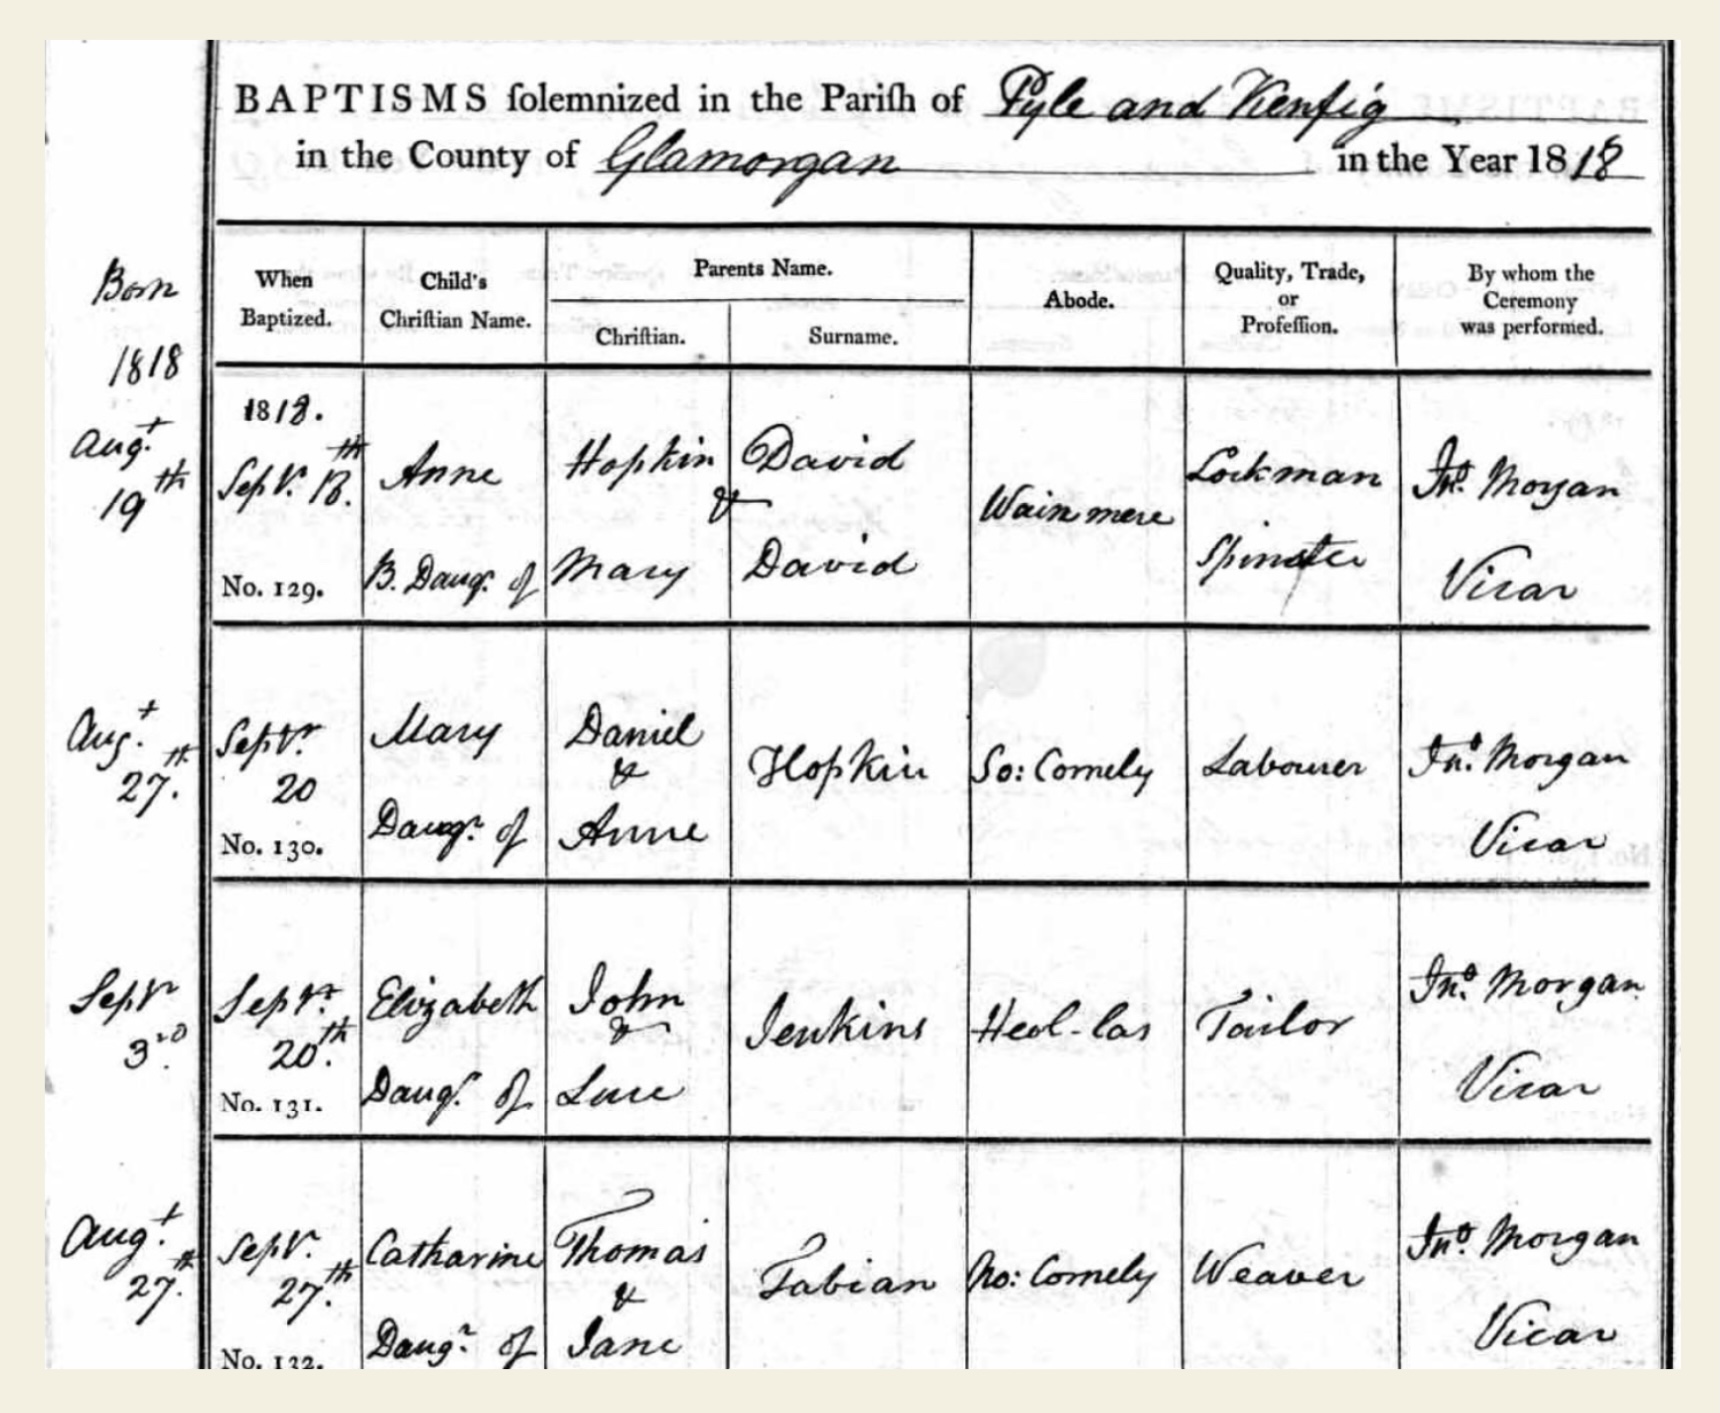 BAPTISMS ſolemnized in the Pariſh of Pyle and Kenfig
in the County of Glamorgan in the Year 1818
Born
1818
When
Baptized.
Child's
Chriſtian Name.
Parents Name.
Chriſtian.
Surname.
Abode.
Quality, Trade,
or
Profeſſion.
By whom the
Ceremony
was performed.
Augt.
19th
1818.
Sepr. 13th.
No. 129.
Anne
B. Daugr. of
Hopkin
&
Mary
David
David
Wain mere
Lockman
Spinster
Jno. Morgan
Vicar
Augt.
27th.
Sepr.
20
No. 130.
Mary
Daugr. of
Daniel
&
Anne
Hopkin
So: Cornely
Labourer
Jno. Morgan
Vicar
Sepr
3rd.
Sepr.
20th.
No. 131.
Elizabeth
Daugr. of
John
&
Luce
Jenkins
Heol-las
Tailor
Jno. Morgan
Vicar
Augt.
27th.
Sepr.
27th.
No. 132.
Catharine
Daugr. of
Thomas
&
Jane
Fabian
No: Cornely
Weaver
Jno. Morgan
Vicar